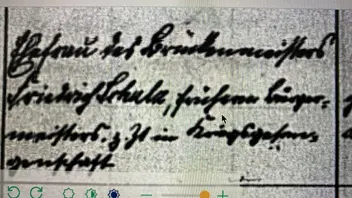 Ehefrau des Brückenmeisters
Friedrich Schulz, früheren Bürger-
meisters, z Zt in Kriegsgefan-
genschaft